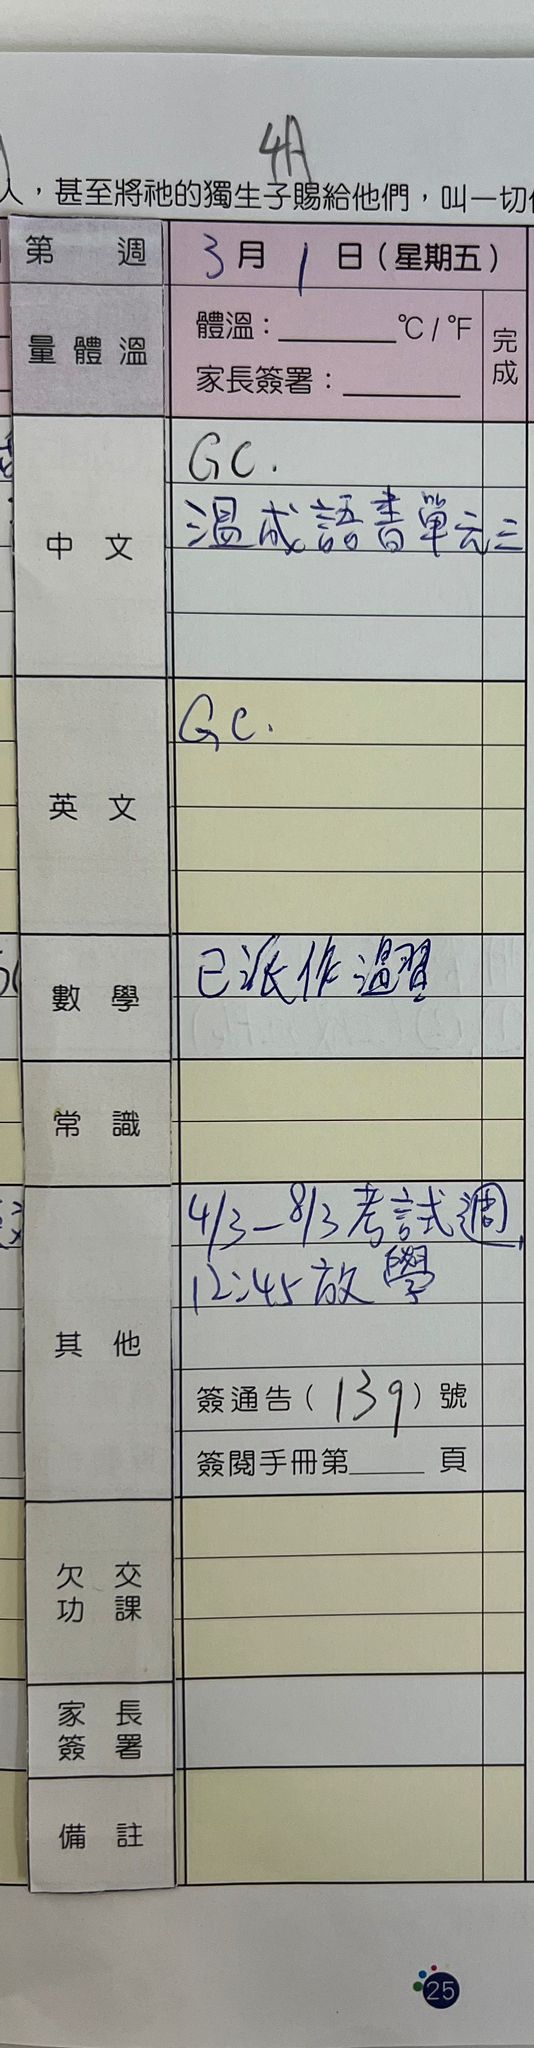 4A
人，甚至將祂的獨生子賜給他們，叫一切
第 週 3月1日（星期五）
量體溫 體溫：______°C/°F 完成
家長簽署：______
中文 GC.
溫成語書單元三
英文 GC.
數學 已派作溫習
常識
其他 4/3－8/3考試週,
12:45放學
簽通告（139）號
簽閱手冊第____頁
欠交
功課
家長
簽署
備註
25